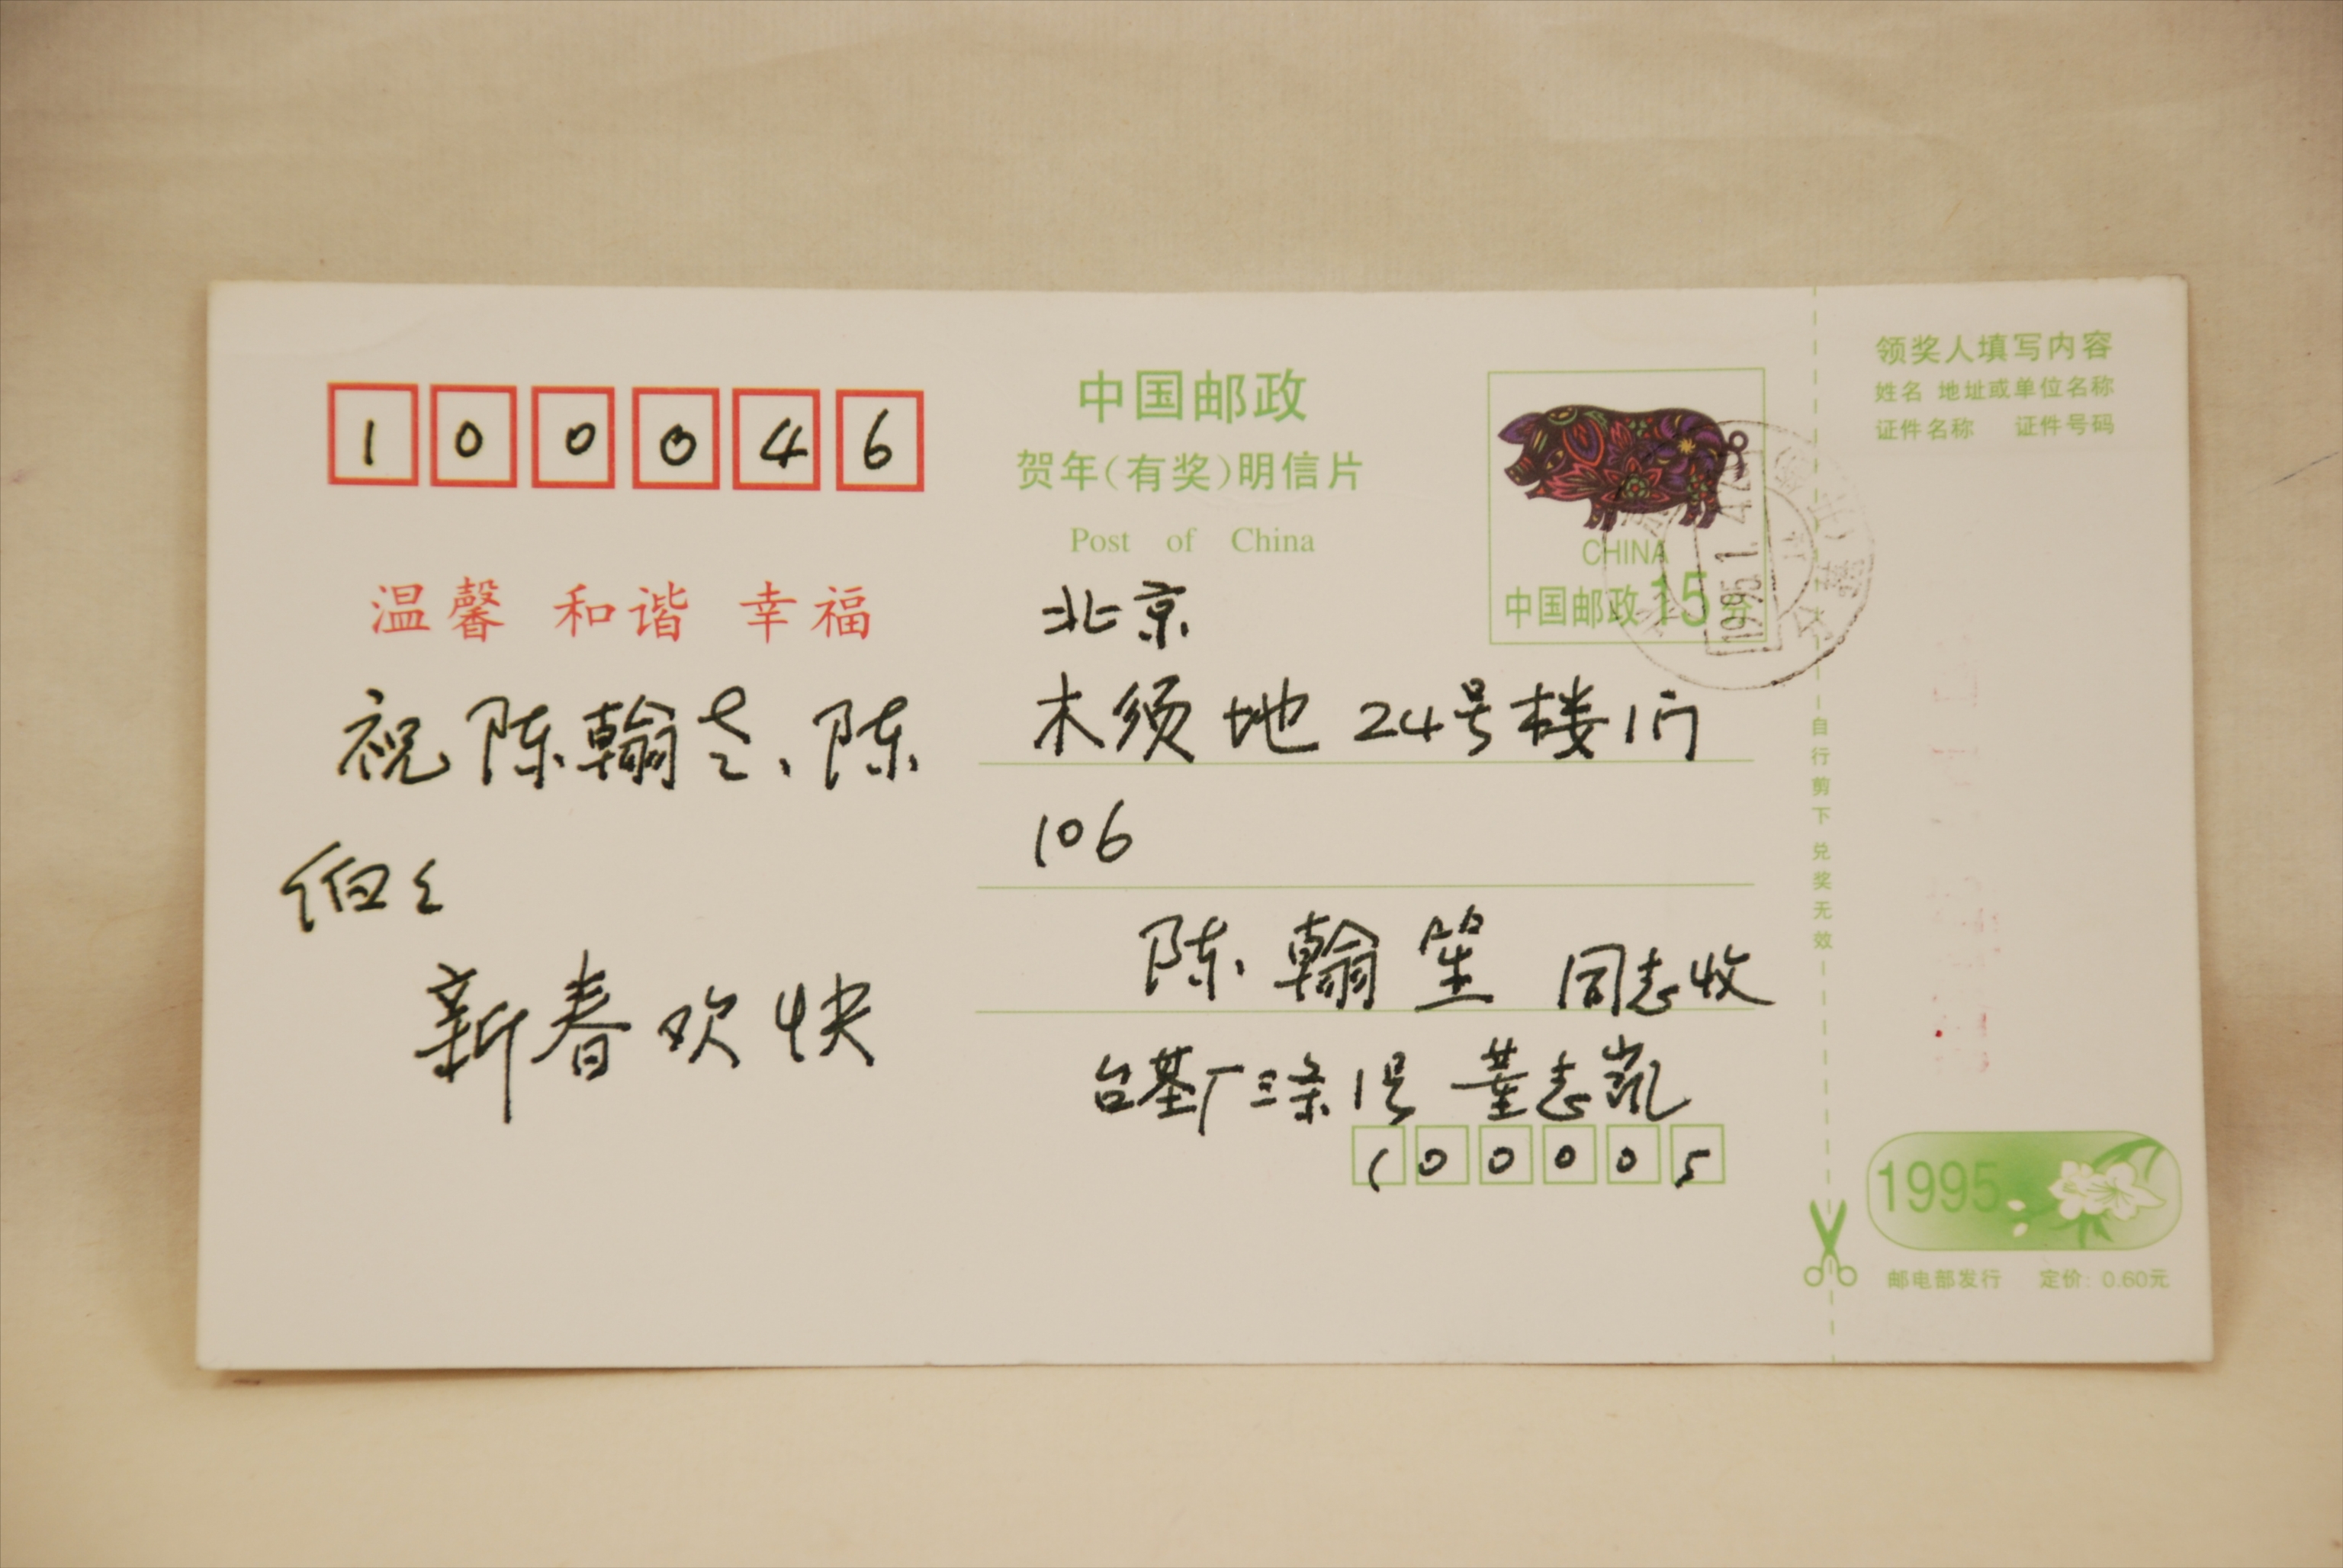 100046
温馨 和谐 幸福
祝陈翰老、陈
新春欢快
中国邮政
贺年(有奖)明信片
Post of China
CHINA
中国邮政15分
1995.1.4
北京
木须地24号楼1门
106
陈翰笙 同志收
台基厂三条1号 董志凯
100005
领奖人填写内容
姓名 地址或单位名称
证件名称 证件号码
自行剪下兑奖无效
1995
邮电部发行 定价: 0.60元